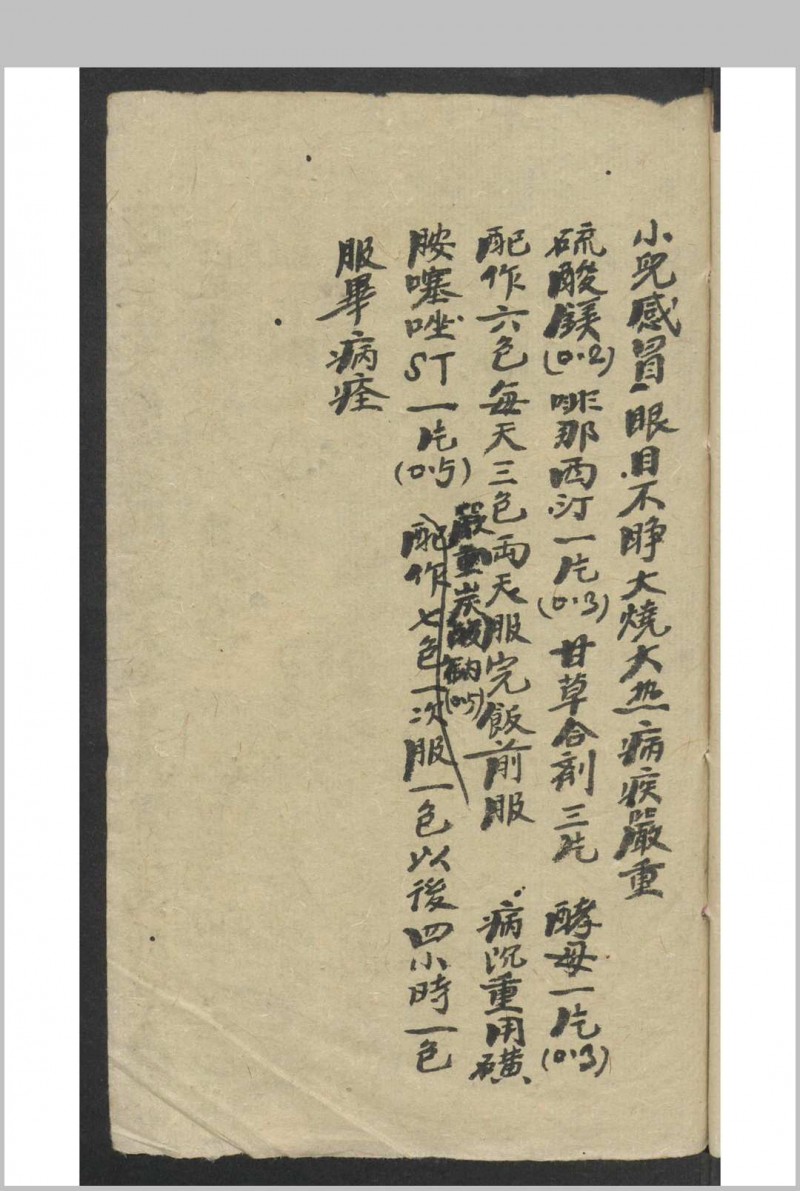 小兒感冒眼目不睁大燒大热病疾嚴重
硫酸鎂(0.2)啡那西汀一片(0.3)甘草合剤三片 酵母一片(0.3)
配作六包每天三包兩天服完飯前服 病沉重用磺
胺噻唑ST一片(0.5) 配作七包一次服一包以後四小時一包
嚴重炭酸鈉(0.5)
服畢病痊